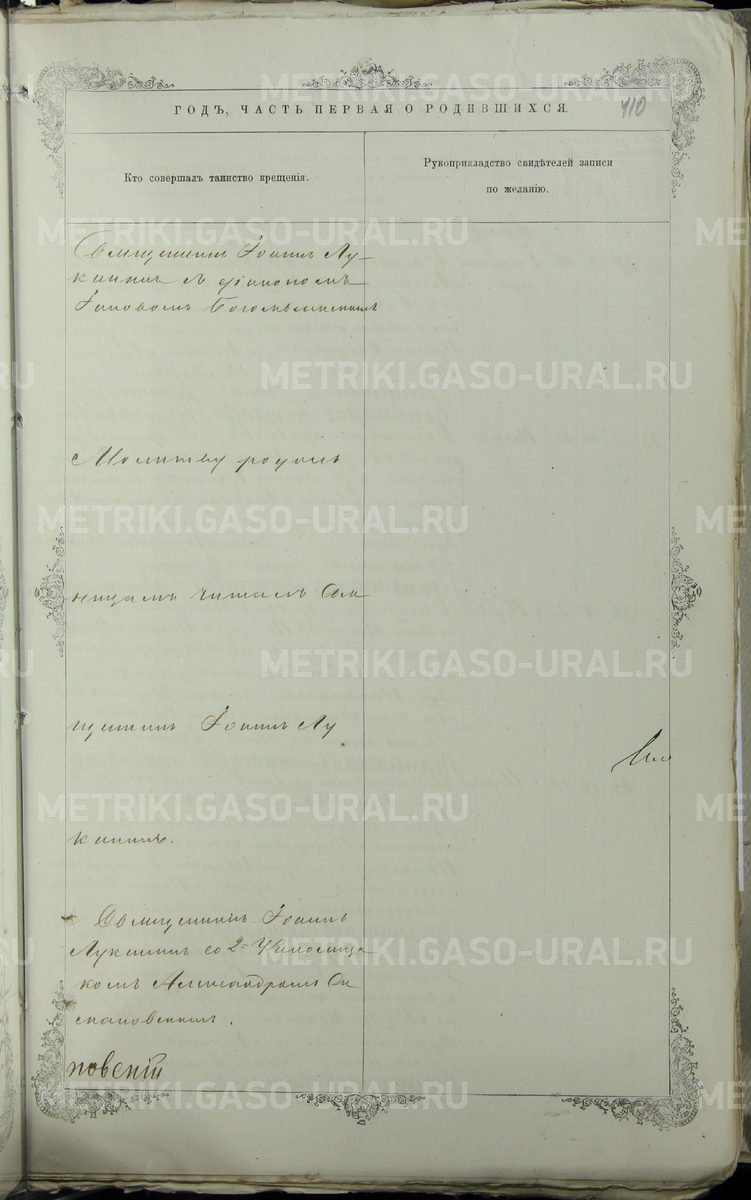 ГОДЪ, ЧАСТЬ ПЕРВАЯ О РОДИВШИХСЯ.
410
Кто совершалъ таинство крещенія.
Рукоприкладство свидѣтелей записи
по желанію.
Священникъ Іоаннъ Лу-
канинъ съ діакономъ
Іаковомъ
Молитву родил
ницамъ читалъ Свя
щенникъ Іоаннъ Лу
канинъ.
Священникъ Іоаннъ
Луканинъ со 2мъ Псаломщи
комъ Александромъ Си
мановскимъ.
METRIKI.GASO-URAL.RU